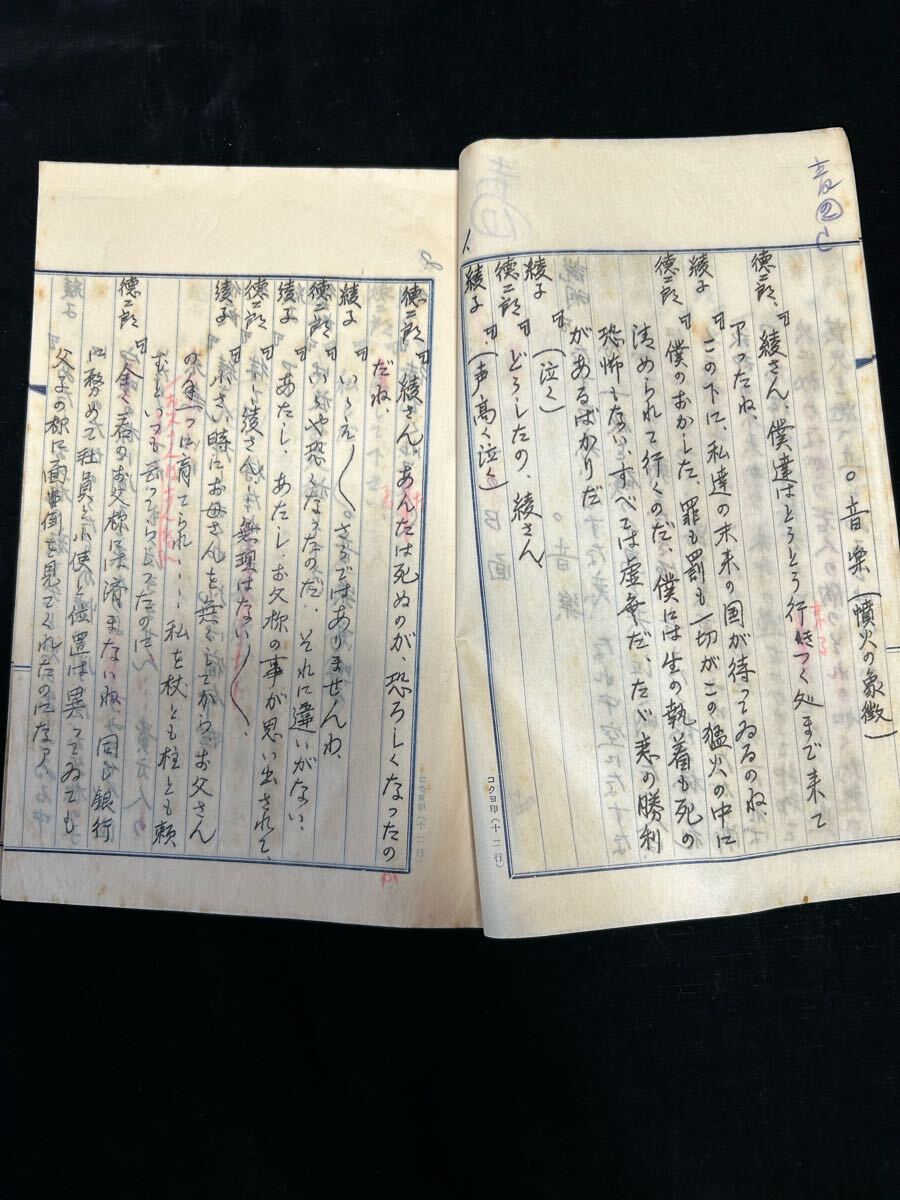 音②C
○音楽(噴火の象徴)
徳二郎、『綾さん、僕達はとうとう行きつく処まで来て
来る
了ったね、
綾子『この下に、私達の未来の国が待ってゐるのね
徳二郎『僕のおかした、罪も罰も一切がこの猛火の中に
清められて行くのだ、僕には生の執着も死の
恐怖もない、すべては虚無だ、たゞ恋の勝利
があるばかりだ
綾子(泣く)
徳二郎『どうしたの、綾さん
綾子、(声高く泣く)
コクヨ印(十二行)
8
徳二郎『綾さん、あんたは死ぬのが、恐ろしくなったの
だね、
綾子『いゝえ〳〵さうではありませんわ、
徳二郎『いゝや恐くなったのだ、それに違いがない
綾子『あたし、あたし、お父様の事が思い出されて、
徳二郎『綾さん、無理はない〳〵、
綾子『小さい時にお母さんを無くしてからお父さん
の手一つに育てられ・・・・私を杖とも柱とも頼
むといつも云って
徳二郎『全く君のお父様には済まないね、同じ銀行
に務めて社員と小使と位置は異ってゐても
父子の様に面倒を見てくれたのになア
綾子